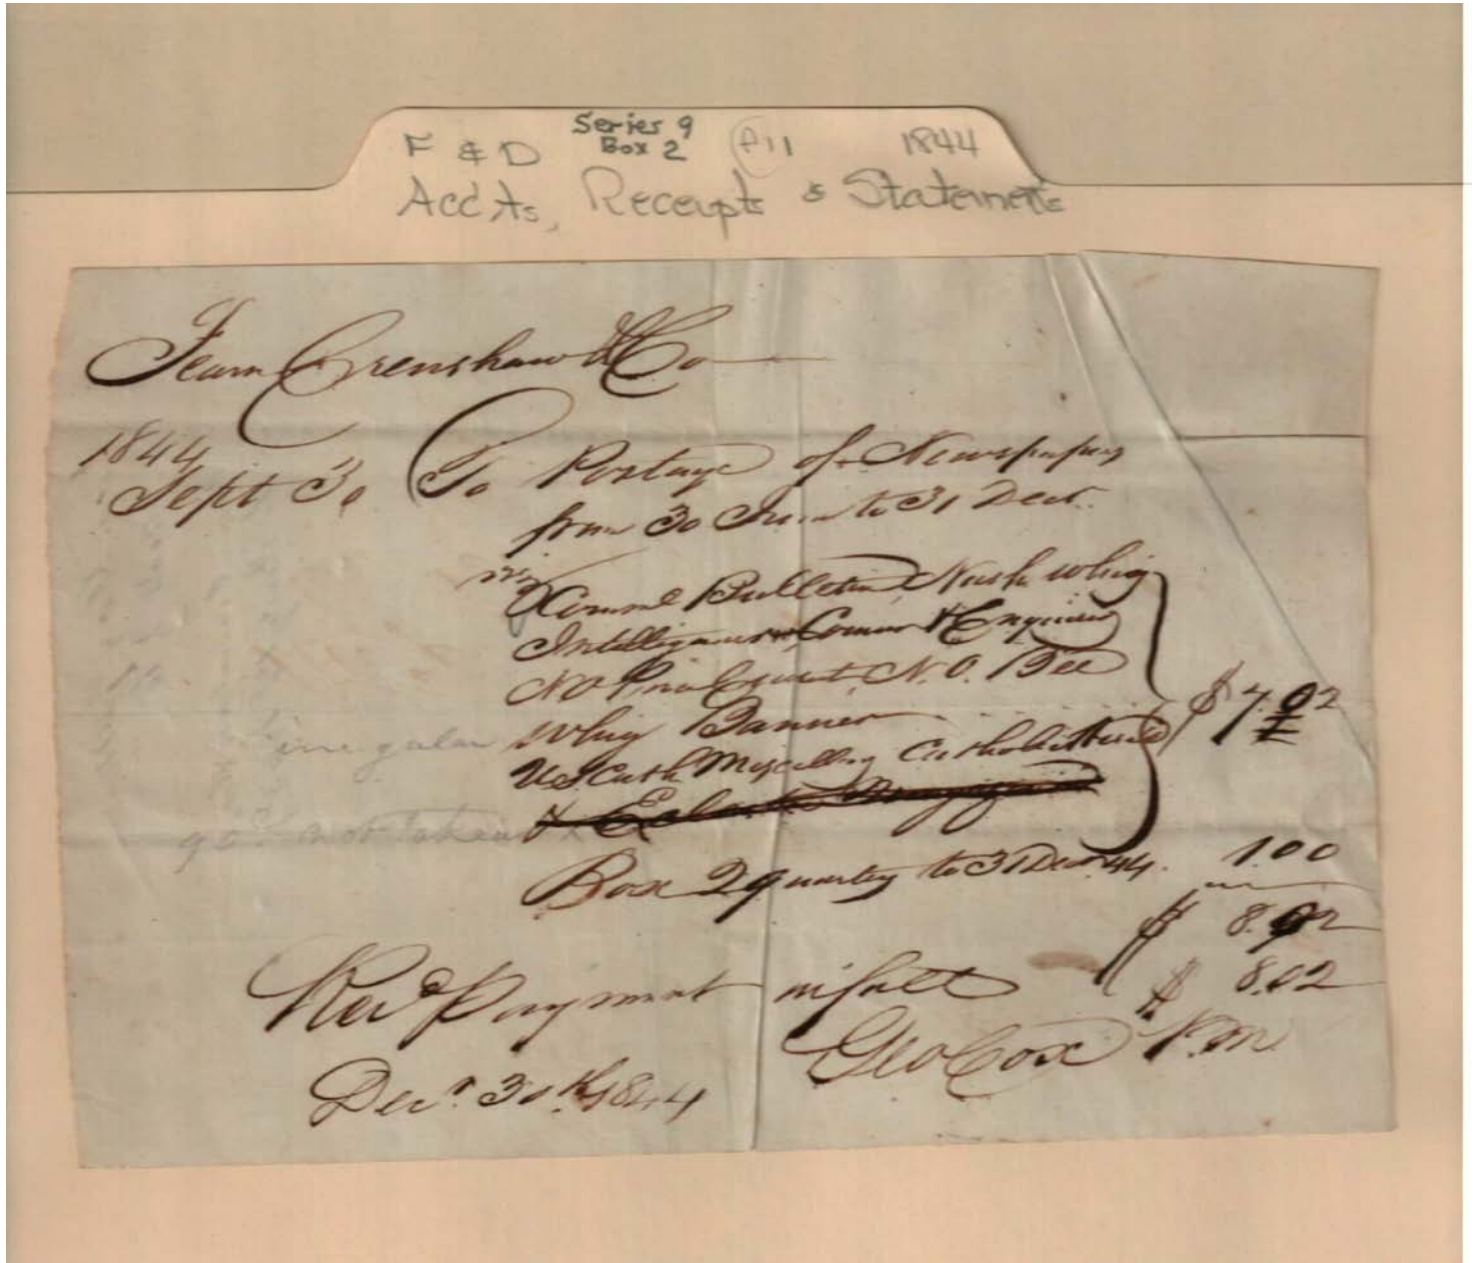 F & D Series 9 Box 2 F11 1844
Acc'ts, Receipts & Statements
Fearn Crenshaw & Co
1844
Sept 30 To Postage of Newspapers
from 30 June to 31 Decr.
viz
Comml Bulletin, Nash Whig
Intelligencer Courier & Enquirer
N.O. Price Current, N.O. Bee
irregular Whig Banner
US Cath Miscellany Catholic Herald $7.02
not taken &
Box 2 quarters to 31 Decr 44. 1.00
$ 8.02
Recd Payment in full $ 8.02
Geo Cox P.M.
Decr. 30th 1844